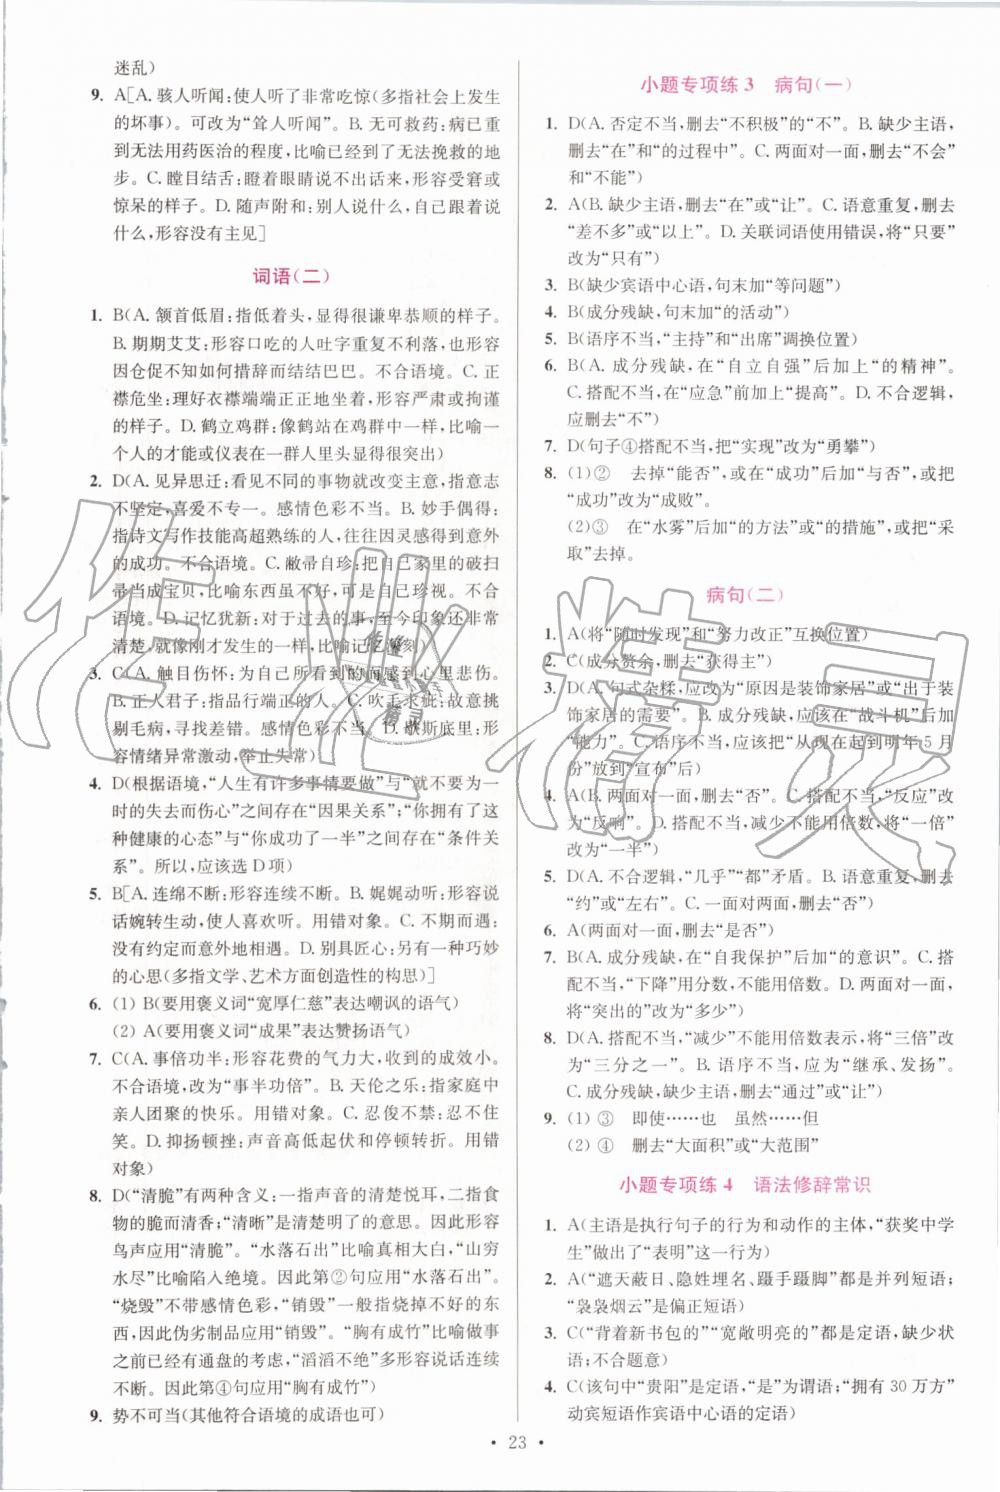 迷乱)
9. A[A. 骇人听闻:使人听了非常吃惊(多指社会上发生
的坏事)。可改为“耸人听闻”。B. 无可救药:病已重
到无法用药医治的程度,比喻到了无法挽救的地
步。C. 瞠目结舌:瞪着眼睛说不出话来,形容受窘或
惊呆的样子。D. 随声附和:别人说什么,自己跟着说
什么,形容没有主见]
词语(二)
1. B(A. 颔首低眉:指低着头,显得很谦卑恭顺的样子。
B. 期期艾艾:形容口吃的人吐字重复不利落,也形容
因仓促不知如何措辞而结结巴巴。不合语境。C. 正
襟危坐:理好衣襟端端正正地坐着,形容严肃或拘谨
的样子。D. 鹤立鸡群:像鹤站在鸡群中一样,比喻一
个人的才能或仪表在一群人里头显得很突出)
2. D(A. 见异思迁:看见不同的事物就改变主意,指意志
不坚定,喜爱不专一。感情色彩不当。B. 妙手偶得:
指诗文写作技能高超熟练的人,往往因灵感而得到意外
的成功。不合语境。C. 敝帚自珍:把自己家里的破扫
帚当成宝贝,比喻东西虽不好,可是自己珍视。不合
语境。D. 记忆犹新:对于过去的事,至今印象还非常
清楚,就像刚才发生的一样,比喻记忆深刻)
3. C(A. 触目伤怀:为自己所看到的而感到心里悲伤。
B. 正人君子:指品行端正的人。C. 吹毛求疵:故意挑
剔毛病,寻找差错。感情色彩不当。D. 歇斯底里:形
容情绪异常激动,举止失常)
4. D(根据语境,“人生有许多事情要做”与“就不要为一
时的失去而伤心”之间存在“因果关系”;“你拥有了这
种健康的心态”与“你成功了一半”之间存在“条件关
系”。所以,应该选D项)
5. B[A. 连绵不断:形容连续不断。B. 娓娓动听:形容说
话婉转生动,使人喜欢听。用错对象。C. 不期而遇:
没有约定而意外地相遇。D. 别具匠心:另有一种巧妙
的心思(多指文学、艺术方面创造性的构思)]
6. (1) B(要用褒义词“宽厚仁慈”表达嘲讽的语气)
(2) A(要用褒义词“成果”表达赞扬语气)
7. C(A. 事倍功半:形容花费的气力大,收到的成效小。
不合语境,改为“事半功倍”。B. 天伦之乐:指家庭中
亲人团聚的快乐。用错对象。C. 忍俊不禁:忍不住
笑。D. 抑扬顿挫:声音高低起伏和停顿转折。用错
对象)
8. D(“清脆”有两种含义:一指声音的清楚悦耳,二指食
物的脆而清香;“清晰”是清楚明了的意思。因此形容
鸟声应用“清脆”。“水落石出”比喻真相大白,“山穷
水尽”比喻陷入绝境。因此第②句应用“水落石出”。
“烧毁”不带感情色彩,“销毁”一般指烧掉不好的东
西,因此伪劣制品应用“销毁”。“胸有成竹”比喻做事
之前已经有通盘的考虑,“滔滔不绝”多形容说话连续
不断。因此第④句应用“胸有成竹”)
9. 势不可当(其他符合语境的成语也可)
小题专项练3 病句(一)
1. D(A. 否定不当,删去“不积极”的“不”。B. 缺少主语,
删去“在”和“的过程中”。C. 两面对一面,删去“不会”
和“不能”)
2. A(B. 缺少主语,删去“在”或“让”。C. 语意重复,删去
“差不多”或“以上”。D. 关联词语使用错误,将“只要”
改为“只有”)
3. B(缺少宾语中心语,句末加“等问题”)
4. B(成分残缺,句末加“的活动”)
5. B(语序不当,“主持”和“出席”调换位置)
6. B(A. 成分残缺,在“自立自强”后加上“的精神”。
C. 搭配不当,在“应急”前加上“提高”。D. 不合逻辑,
应删去“不”)
7. D(句子④搭配不当,把“实现”改为“勇攀”)
8. (1)② 去掉“能否”,或在“成功”后加“与否”,或把
“成功”改为“成败”。
(2)③ 在“水雾”后加“的方法”或“的措施”,或把“采
取”去掉。
病句(二)
1. A(将“随时发现”和“努力改正”互换位置)
2. C(成分赘余,删去“获得主”)
3. D(A. 句式杂糅,应改为“原因是装饰家居”或“出于装
饰家居的需要”。B. 成分残缺,应该在“战斗机”后加
“能力”。C. 语序不当,应该把“从现在起到明年5月
份”放到“宣布”后)
4. A(B. 两面对一面,删去“能否”。C. 搭配不当,“反应”改
为“反响”。D. 搭配不当,减少不能用倍数,将“一倍”
改为“一半”)
5. D(A. 不合逻辑,“几乎”“都”矛盾。B. 语意重复,删去
“约”或“左右”。C. 一面对两面,删去“否”)
6. A(两面对一面,删去“是否”)
7. B(A. 成分残缺,在“自我保护”后加“的意识”。C. 搭
配不当,“下降”用分数,不能用倍数。D. 两面对一面,
将“突出的”改为“多少”)
8. D(A. 搭配不当,“减少”不能用倍数表示,将“三倍”改
为“三分之一”。B. 语序不当,应为“继承、发扬”。
C. 成分残缺,缺少主语,删去“通过”或“让”)
9. (1) ③ 即使……也 虽然……但
(2) ④ 删去“大面积”或“大范围”
小题专项练4 语法修辞常识
1. A(主语是执行句子的行为和动作的主体,“获奖中学
生”做出了“表明”这一行为)
2. A(“遮天蔽日、隐姓埋名、蹑手蹑脚”都是并列短语;
“袅袅烟云”是偏正短语)
3. C(“背着新书包的”“宽敞明亮的”都是定语,缺少状
语;不合题意)
4. C(该句中“贵阳”是定语,“是”为谓语;“拥有30万方”
动宾短语作宾语中心语的定语)
• 23 •
作业精灵